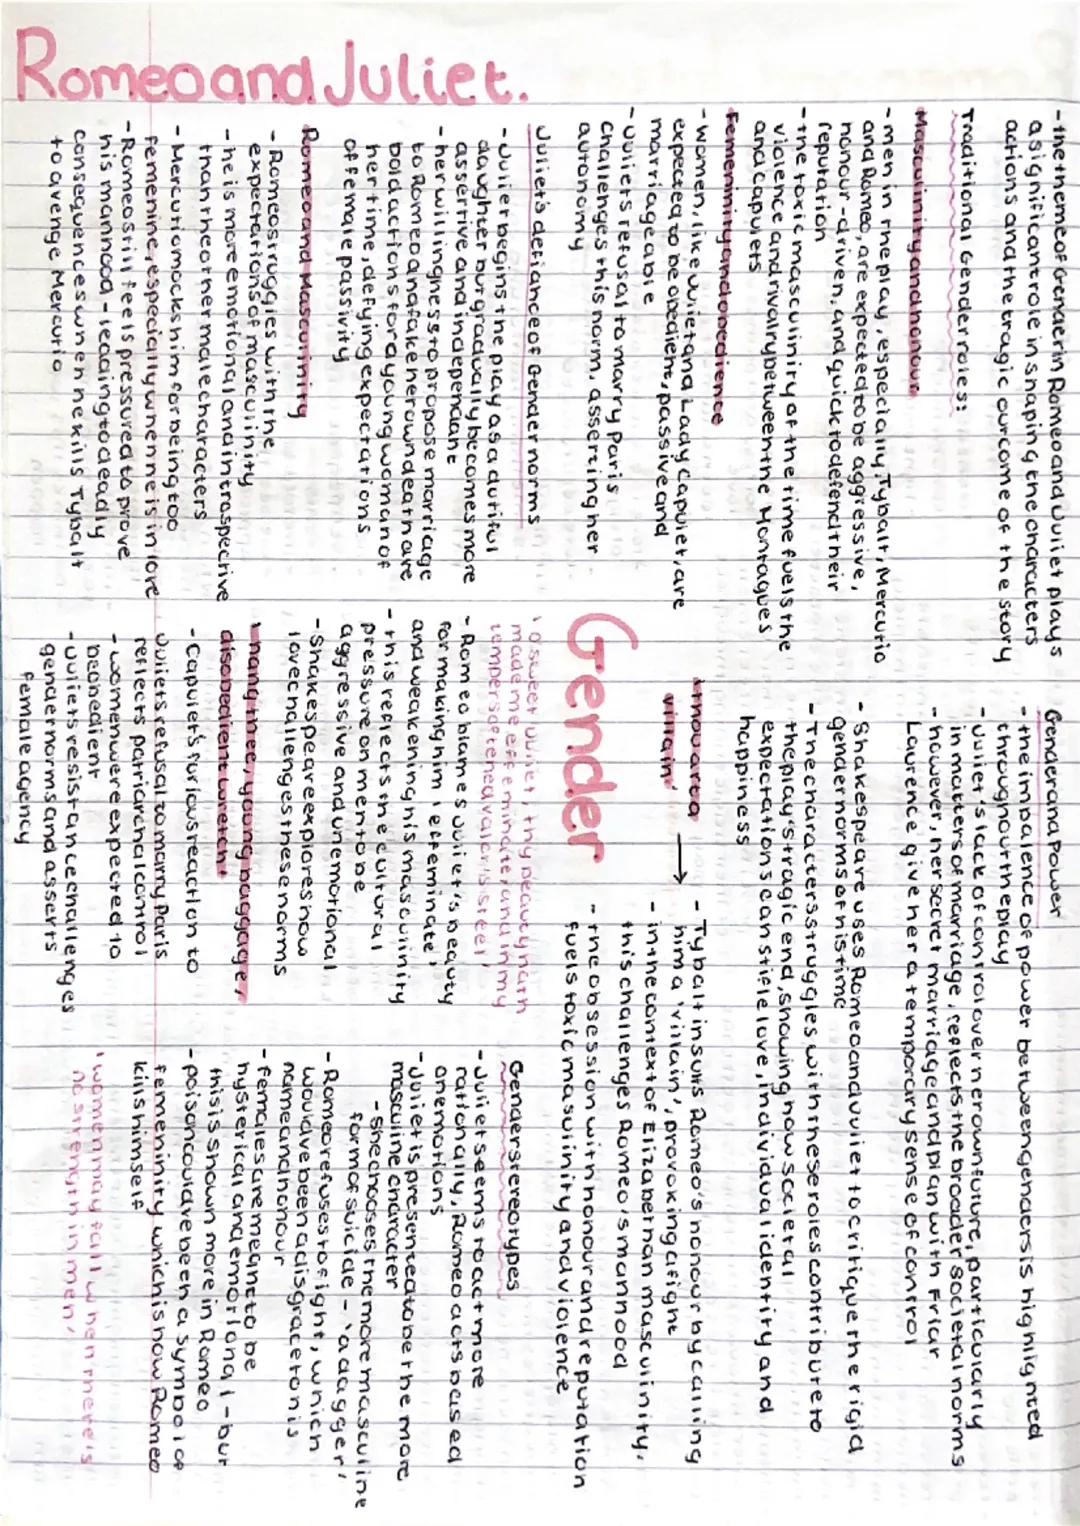 Romeo and Juliet.
- the theme of Gender in Romeo and Juliet plays
a significant role in shaping the characters
actions and the tragic outcome of the story
Traditional Gender roles:
Masculinity and honour
- men in the play, especially, Tybalt, Mercutio
and Romeo, are expected to be aggressive,
honour-driven, and quick to defend their
reputation
- the toxic masculinity of the time fuels the
violence and rivalry between the Montagues
and Capulets
Femeninity and obedience
- women, like Juliet and Lady Capulet, are
expected to be obedient, passive and
marriageable
- Juliets refusal to marry Paris
challenges this norm, asserting her
autonomy
Juliet's defiance of Gender norms
- Juliet begins the play as a dutiful
daugher but gradually becomes more
assertive and independant
- her willingness to propose marriage
to Romeo and fake her own death are
bold actions for a young woman of
her time, defying expectations
of female passivity
Romeo and Masculinity
- Romeo struggles with the
expectations of masculinity
- he is more emotional and introspective
than the other male characters
- Mercutio mocks him for being too
femenine, especially when he is in love
- Romeo still feels pressured to prove
his manhood - leading to deadly
consequences when he kills Tybalt
to avenge Mercutio
Gender
Gender and Power
- the imbalence of power between genders is highlighted
through out the play
- Juliet's lack of control over her own future, particularly
in matters of marriage, reflects the broader societal norms
- however, her secret marriage and plan with Friar
Laurence give her a temporary sense of control
- Shakespeare uses Romeo and Juliet to critique the rigid
gender norms of his time
- The characters struggles with these roles contribute to
the play's tragic end, showing how societal
expectations can stifle love, individual identity and
happiness
'thou art a
villain' →
- Tybalt insults Romeo's honour by calling
him a 'villain', provoking a fight
- in the context of Elizabethan masculinity,
this challenges Romeo's manhood
- the obsession with honour and reputation
fuels toxic masulinity and violence
'o sweet Juliet, thy beauty hath
made me effeminate, and in my
temper softened valor's steel'
- Romeo blames Juliet's beauty
for making him 'effeminate'
and weakening his masculinity
- this reflects the cultural
pressure on men to be
aggressive and unemotional
- Shakespeare explores how
love challenges these norms
'hang thee, young baggage,
disobedient wretch'
- Capulet's furious reaction to
Juliets refusal to marry Paris
reflects patriarchal control
- women were expected to
be obedient
- Juliets resistance challenges
gender norms and asserts
female agency
Gender stereotypes
- Juliet seems to act more
rationally, Romeo acts based
on emotions
- Juliet is presented to be the more
masculine character
- She chooses the more masculine
form of suicide - 'a dagger'
- Romeo refuses to fight, which
would've been a disgrace to his
name and honour
- females are meant to be
hysterical and emotional - but
this is shown more in Romeo
- poison could've been a symbol of
femeninity which is how Romeo
kills himself
'women may fall when there's
no strength in men'